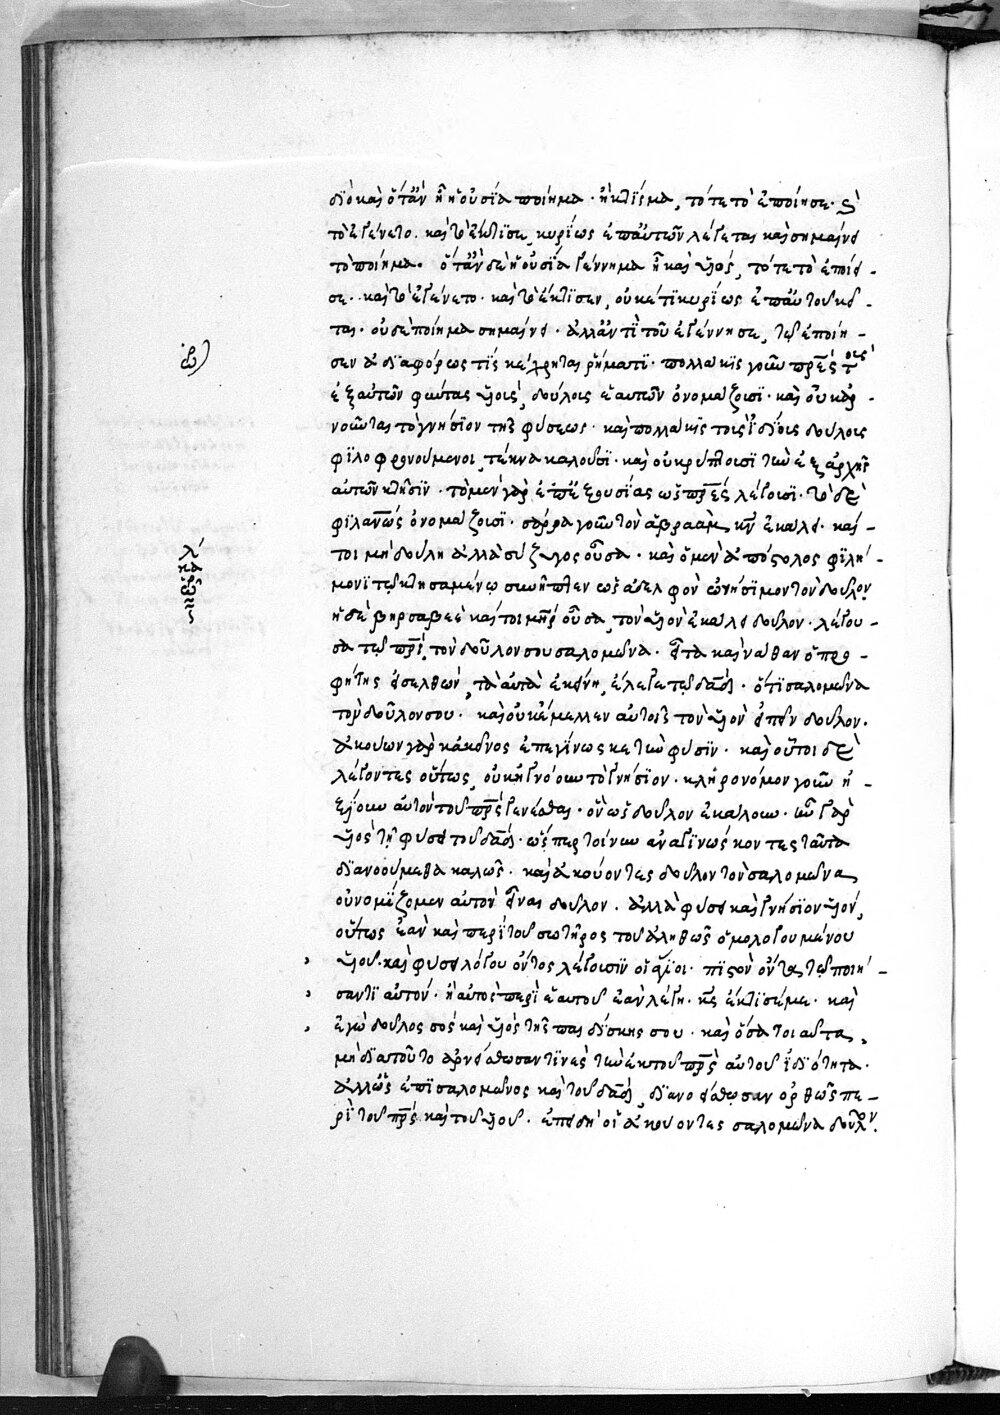 διὸ καὶ ὅταν ᾖ ἡ οὐσία ποίημα ἢ κτίσμα, τότε τὸ ἐποίησε· καὶ
τὸ ἐγένετο· καὶ τὸ ἔκτισε, κυρίως ἐπ αὐτῶν λέγεται καὶ σημαίνει
τὸ ποίημα. ὅταν δὲ ἡ οὐσία γέννημα ᾖ καὶ υἱός, τότε τὸ ἐποίη-
σε· καὶ τὸ ἐγένετο· καὶ τὸ ἔκτισεν, οὐκέτι κυρίως ἐπ αὐτοῦ κεῖ-
ται· οὐδὲ ποίημα σημαίνει· ἀλλ ἀντὶ τοῦ ἐγέννησε, τῷ ἐποίη-
σεν ἀδιαφόρως τὶς κέχρηται ῥήματι· πολλάκις γοῦν πρες τοὺς
ἐξ αὐτῶν φύντας υἱοὺς, δούλους ἑαυτῶν ὀνομάζουσι· καὶ οὐκ ἀρ-
νοῦνται τὸ γνήσιον τῆς φύσεως· καὶ πολλάκις τοὺς ἰδίους δούλους
φιλοφρονούμενοι, τέκνα καλοῦσι· καὶ οὐ κρύπτουσι τὴν ἐξ ἀρχῆς
αὐτῶν κτῆσιν· τὸ μὲν γὰρ ἀπὸ ἐξουσίας ὡς πρες λέγουσι· τὸ δὲ
φιλανως ὀνομάζουσι· σάρρα γοῦν τὸν ἀβραὰμ κν ἐκάλει· καί-
τοι μὴ δούλη ἀλλὰ σύζυγος οὖσα· καὶ ὁ μὲν ἀπόστολος φιλή-
μονι τῷ κτησαμένῳ συνῆπτεν ὡς ἀδελφὸν ὀνήσιμον τὸν δοῦλον
ἡ δὲ βηρσαβεὲ καίτοι μηρ οὖσα, τὸν υἱὸν ἐκάλει δοῦλον· λέγου-
σα τῷ πρι, τὸν δοῦλον σου σαλομῶνα· εἶτα καὶ νάθαν ὁ προ-
φήτης εἰσελθὼν, τὰ αὐτὰ ἐκείνῃ, ἔλεγε τῷ δαδ· ὅτι σαλομῶνα
τὸν δοῦλον σου· καὶ οὐκ ἔμελλεν αὐτοῖς τὸν υἱὸν εἰπεῖν δοῦλον.
ἀκούων γὰρ κἀκεῖνος ἐπεγίνωσκε τὴν φύσιν· καὶ οὗτοι δὲ
λέγοντες οὕτως, οὐκ ἠγνόουν τὸ γνήσιον· κληρονόμον γοῦν ἠ-
ξίουν αὐτὸν τοῦ πρς γενέσθαι· ὃν ὡς δοῦλον ἐκάλουν· ἦν γὰρ
υἱὸς τῇ φύσει τοῦ δαδ· ὥσπερ τοίνυν ἀναγινώσκοντες ταῦτα
διανοούμεθα καλῶς· καὶ ἀκούοντες δοῦλον τὸν σαλομῶνα
οὐ νομίζομεν αὐτὸν εἶναι δοῦλον. ἀλλὰ φύσει καὶ γνήσιον υἱόν,
οὕτως ἐὰν καὶ περὶ τοῦ σωτῆρος τοῦ ἀληθῶς ὁμολογουμένου
υἱοῦ· καὶ φύσει λόγου ὄντος λέγουσιν οἱ ἅγιοι· πιστὸν ὄντα τῷ ποιή-
σαντι αὐτόν· ἢ αὐτὸς περὶ ἑαυτοῦ ἐὰν λέγῃ· κς ἔκτισέ με· καὶ
ἐγὼ δοῦλος σὸς καὶ υἱὸς τῆς παιδίσκης σου· καὶ ὅσα τοιαῦτα,
μὴ διὰ τοῦτο ἀρνείσθωσάν τινες τὴν ἐκ τοῦ πρς αὐτοῦ ἰδιότητα·
ἀλλ ὡς ἐπὶ σαλομῶνος καὶ τοῦ δαδ, διανοείσθωσαν ὀρθῶς πε-
ρὶ τοῦ πρς καὶ τοῦ υἱοῦ· ἐπειδὴ οἱ ἀκούοντες σαλομῶνα δοῦλον.